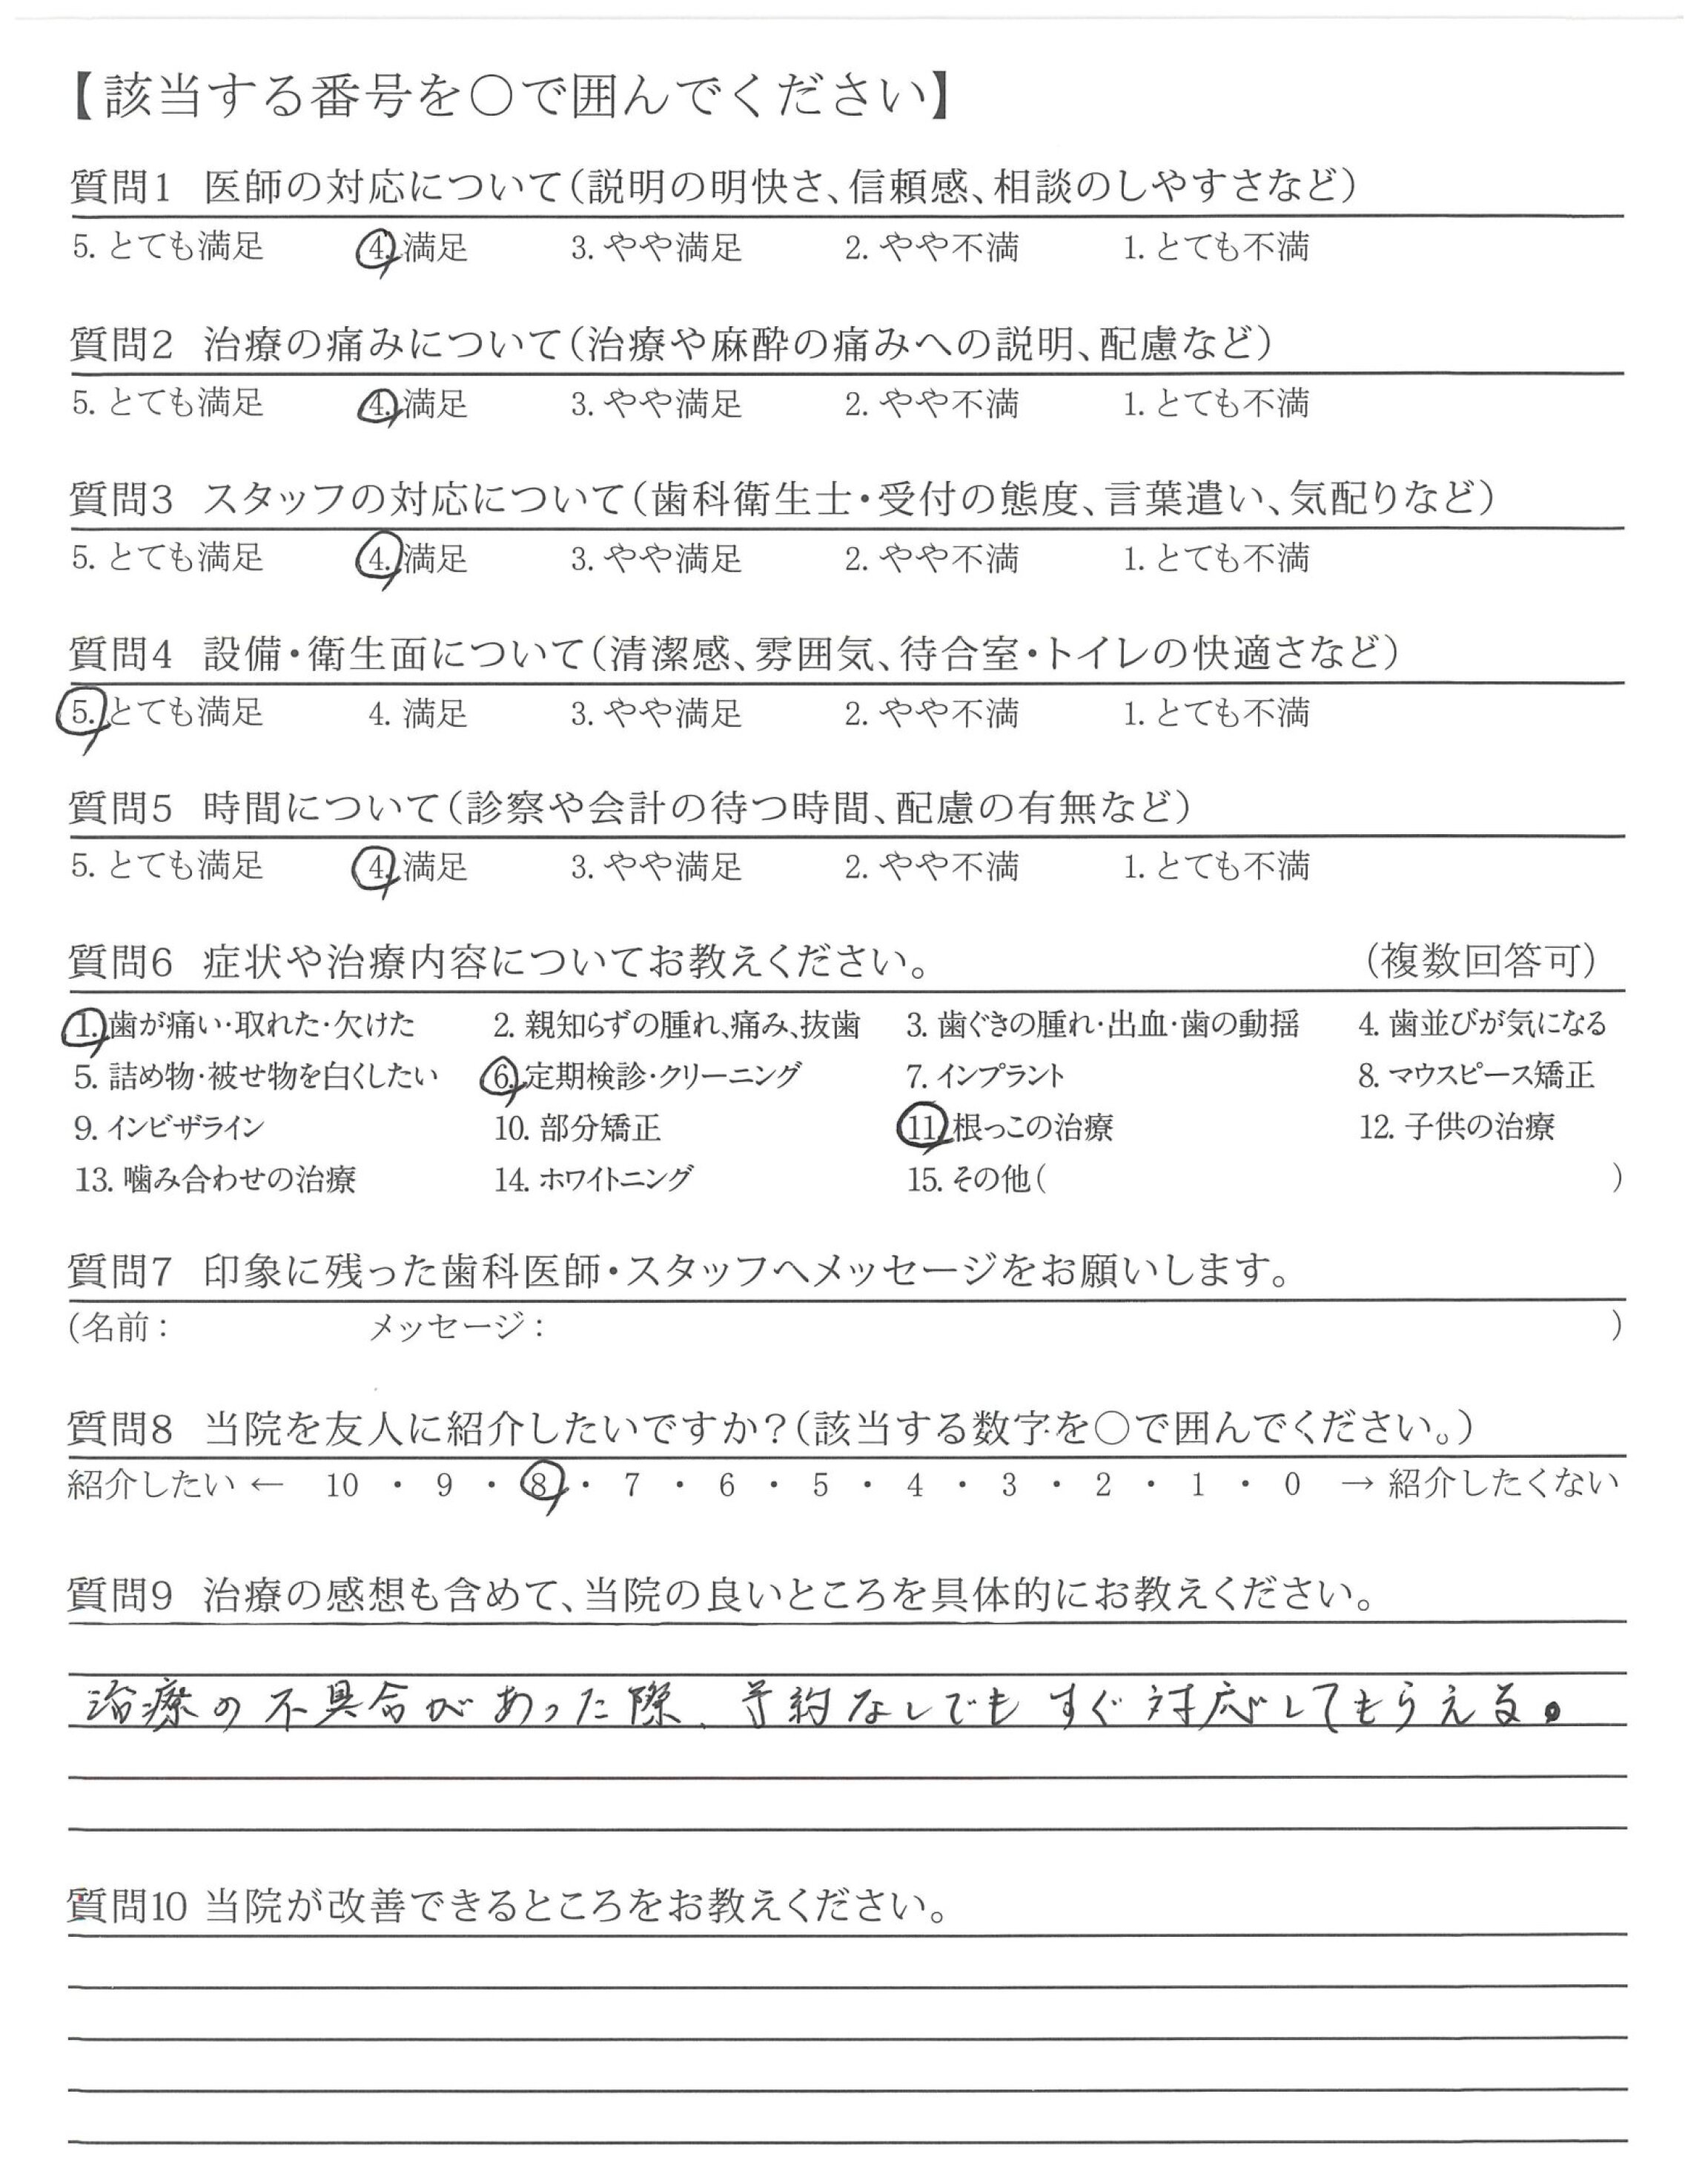 【該当する番号を○で囲んでください】
質問1 医師の対応について(説明の明快さ、信頼感、相談のしやすさなど)
5. とても満足 4. 満足 3. やや満足 2. やや不満 1. とても不満
質問2 治療の痛みについて(治療や麻酔の痛みへの説明、配慮など)
5. とても満足 4. 満足 3. やや満足 2. やや不満 1. とても不満
質問3 スタッフの対応について(歯科衛生士・受付の態度、言葉遣い、気配りなど)
5. とても満足 4. 満足 3. やや満足 2. やや不満 1. とても不満
質問4 設備・衛生面について(清潔感、雰囲気、待合室・トイレの快適さなど)
5. とても満足 4. 満足 3. やや満足 2. やや不満 1. とても不満
質問5 時間について(診察や会計の待つ時間、配慮の有無など)
5. とても満足 4. 満足 3. やや満足 2. やや不満 1. とても不満
質問6 症状や治療内容についてお教えください。 (複数回答可)
1. 歯が痛い・取れた・欠けた 2. 親知らずの腫れ、痛み、抜歯 3. 歯ぐきの腫れ・出血・歯の動揺 4. 歯並びが気になる
5. 詰め物・被せ物を白くしたい 6. 定期検診・クリーニング 7. インプラント 8. マウスピース矯正
9. インビザライン 10. 部分矯正 11. 根っこの治療 12. 子供の治療
13. 噛み合わせの治療 14. ホワイトニング 15. その他( )
質問7 印象に残った歯科医師・スタッフへメッセージをお願いします。
(名前: メッセージ: )
質問8 当院を友人に紹介したいですか?(該当する数字を○で囲んでください。)
紹介したい ← 10 ・ 9 ・ 8 ・ 7 ・ 6 ・ 5 ・ 4 ・ 3 ・ 2 ・ 1 ・ 0 → 紹介したくない
質問9 治療の感想も含めて、当院の良いところを具体的にお教えください。
治療の不具合があった際、予約なしでもすぐ対応してもらえる。
質問10 当院が改善できるところをお教えください。